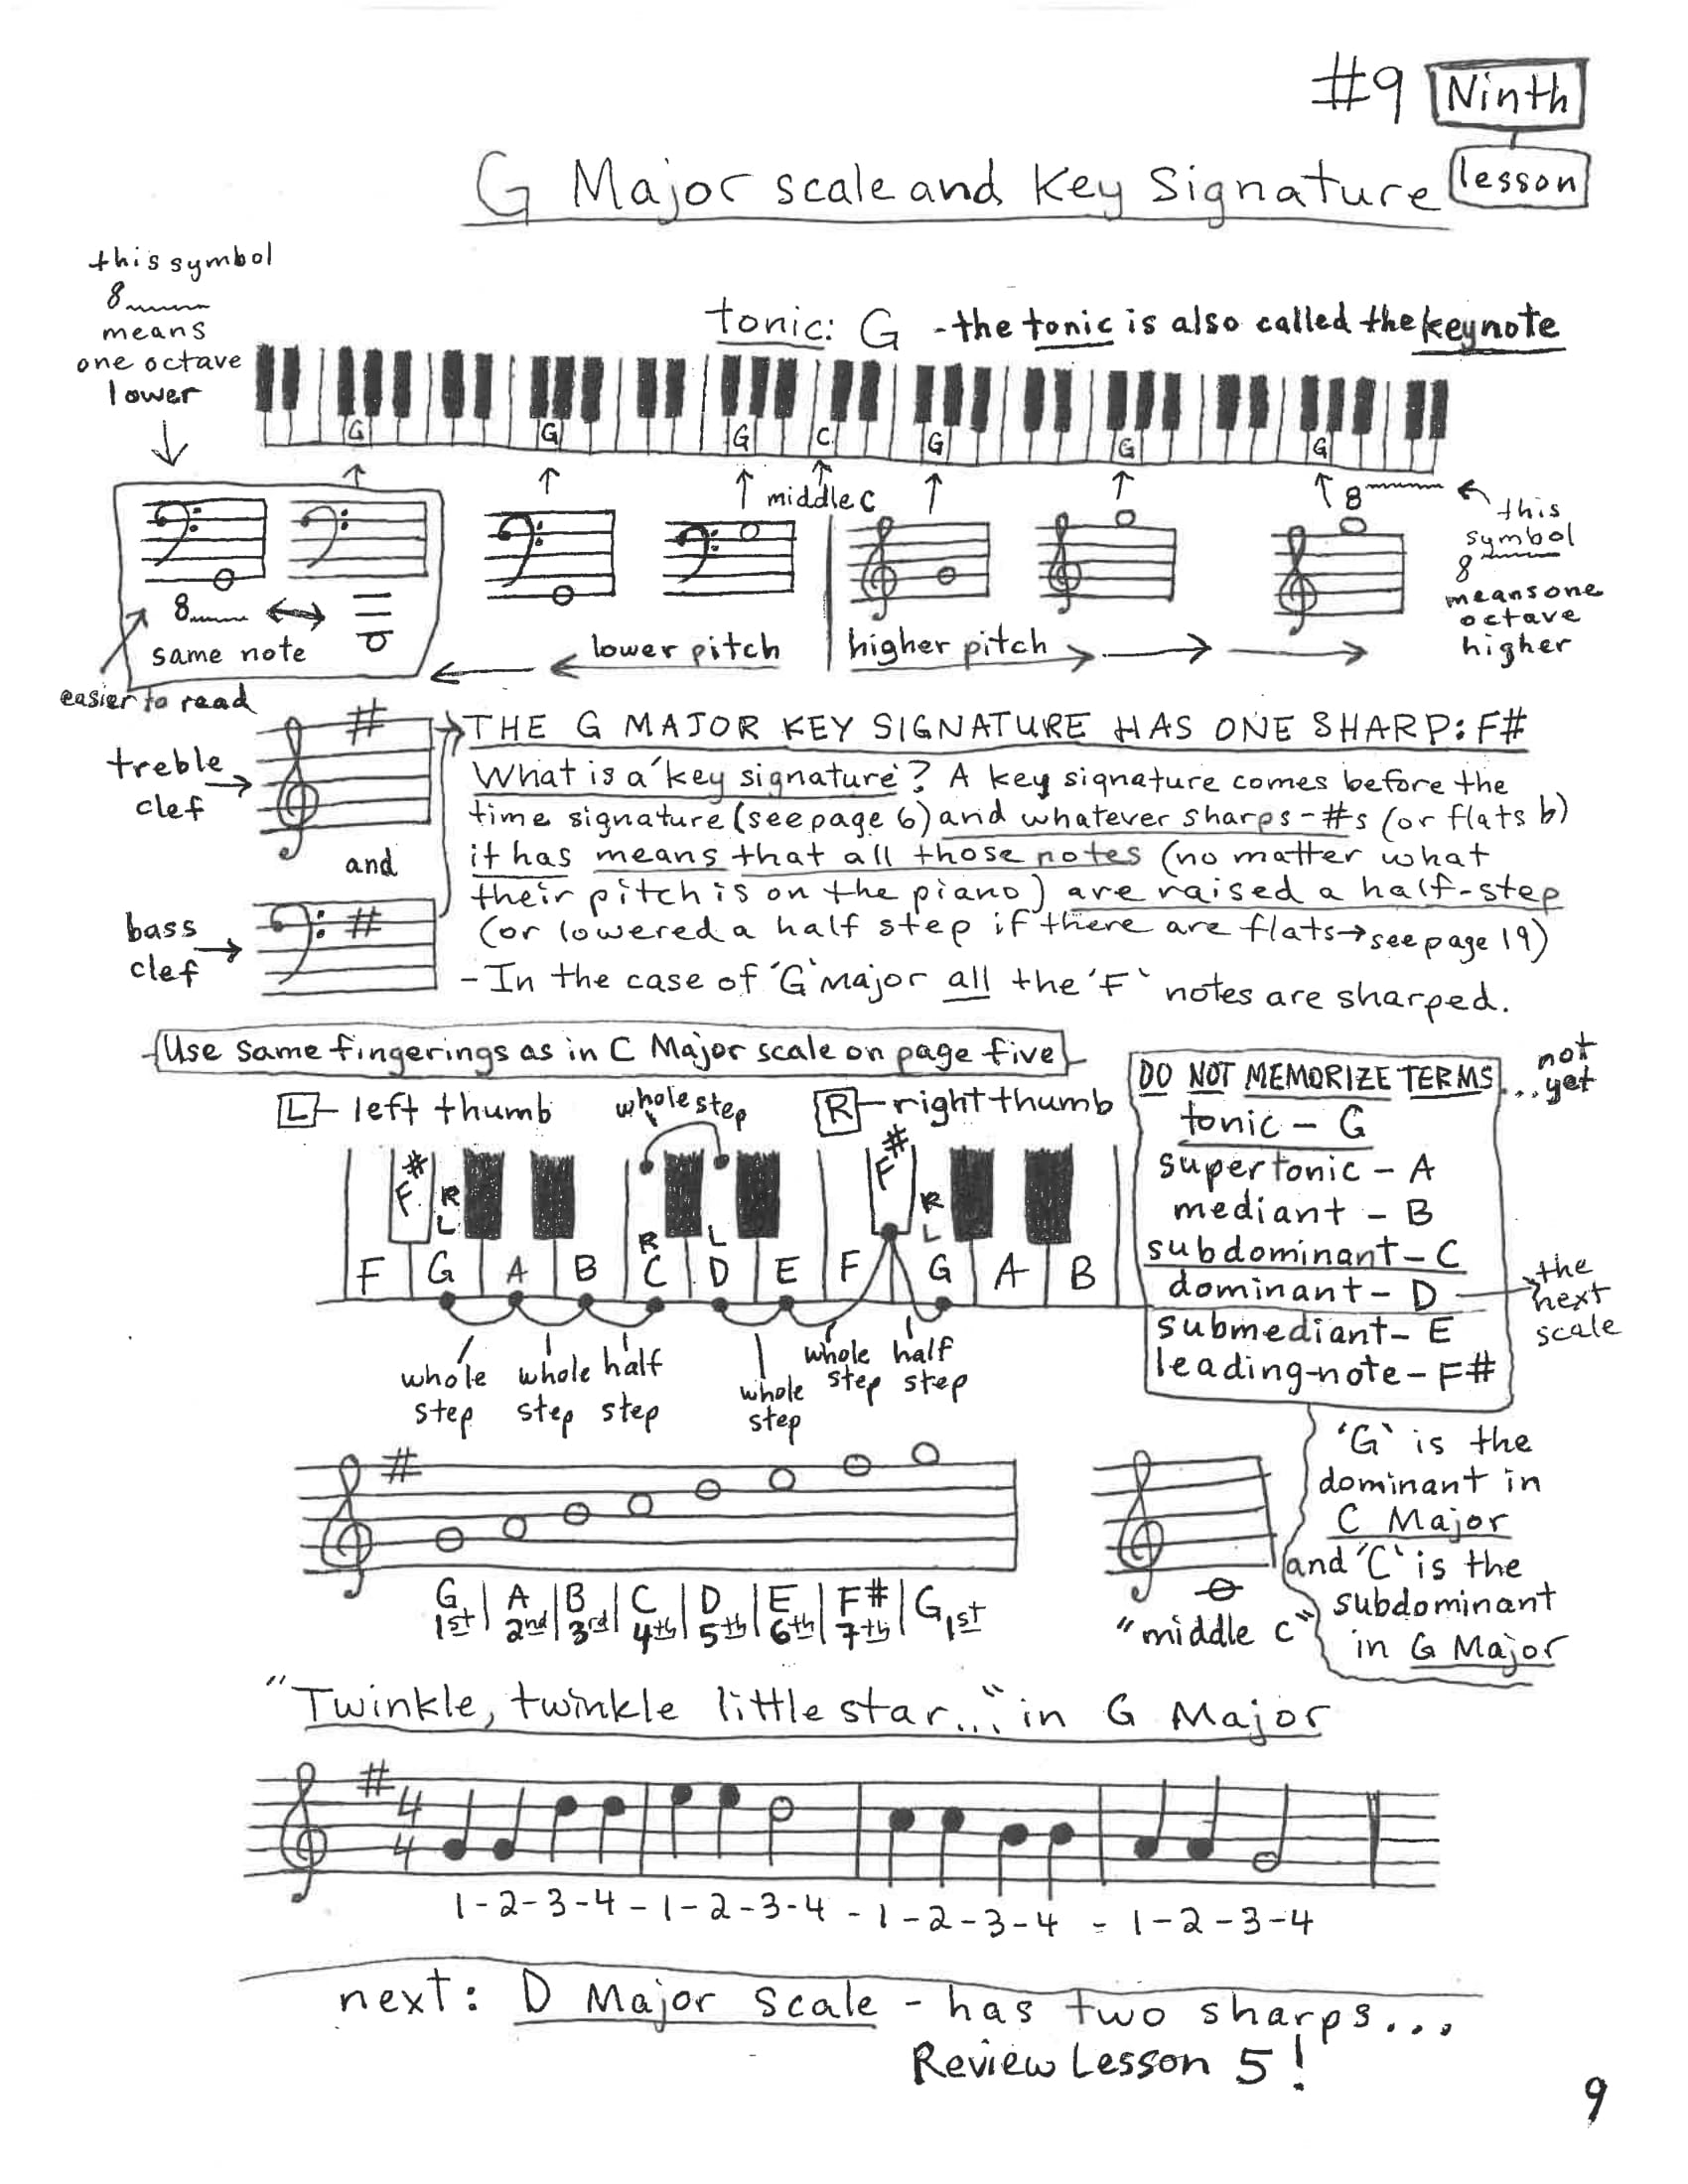 #9 Ninth
lesson
G Major scale and Key Signature
this symbol
8
means
one octave
lower
tonic: G - the tonic is also called the keynote
G G G C G G G
middle C
8
this
symbol
8
means one
octave
higher
8
same note
easier to read
lower pitch
higher pitch
treble
clef
and
bass
clef
THE G MAJOR KEY SIGNATURE HAS ONE SHARP: F#
What is a 'key signature'? A key signature comes before the
time signature (see page 6) and whatever sharps - #s (or flats b)
it has means that all those notes (no matter what
their pitch is on the piano) are raised a half-step
(or lowered a half step if there are flats→see page 19)
- In the case of 'G' Major all the 'F' notes are sharped.
Use same fingerings as in C Major scale on page five
L - left thumb
whole step
R - right thumb
F# R L R L F# R L
F G A B C D E F G A B
whole step
whole step
half step
whole step
whole step
half step
DO NOT MEMORIZE TERMS ...not yet
tonic - G
supertonic - A
mediant - B
subdominant - C
dominant - D
the
next
scale
submediant - E
leading-note - F#
'G' is the
dominant in
C Major
and 'C' is the
subdominant
in G Major
#
G | A | B | C | D | E | F# | G
1st | 2nd | 3rd | 4th | 5th | 6th | 7th | 1st
"middle C"
"Twinkle, twinkle little star..." in G Major
# 4
4
1-2-3-4-1-2-3-4-1-2-3-4-1-2-3-4
next: D Major Scale - has two sharps...
Review Lesson 5!
9